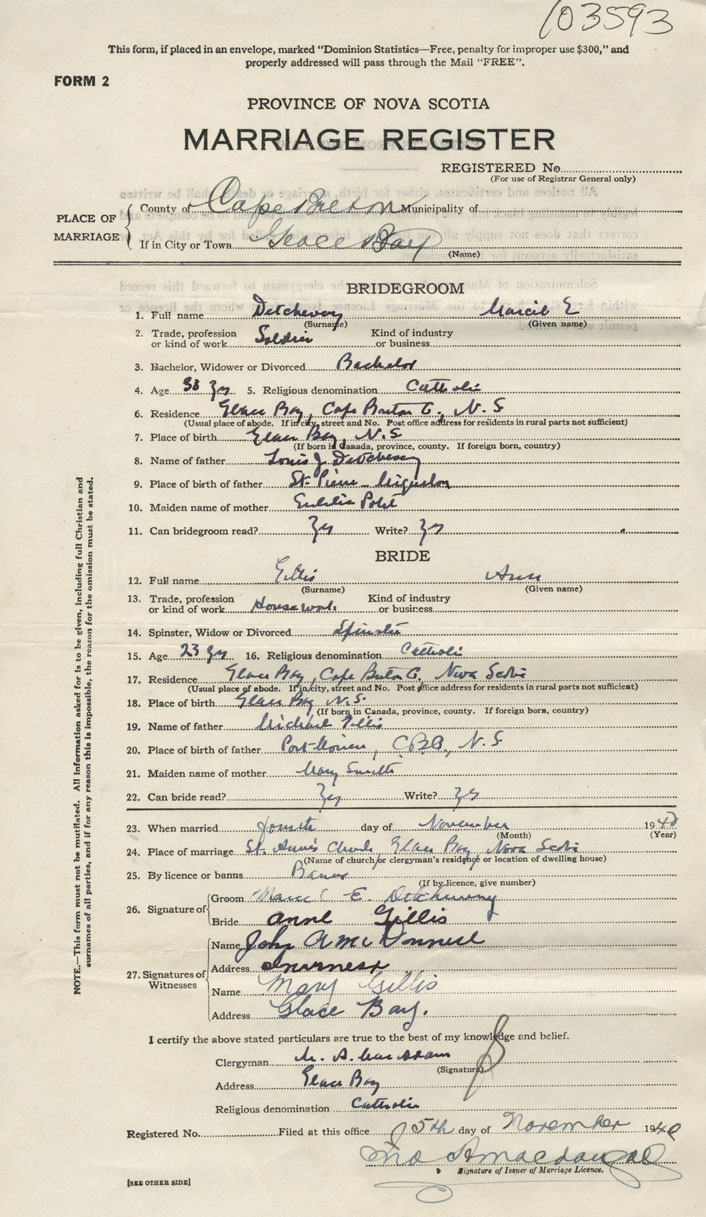 103593
This form, if placed in an envelope, marked "Dominion Statistics—Free, penalty for improper use $300," and
properly addressed will pass through the Mail "FREE".
FORM 2
PROVINCE OF NOVA SCOTIA
MARRIAGE REGISTER
REGISTERED No.
(For use of Registrar General only)
PLACE OF MARRIAGE
County of Cape Breton Municipality of
If in City or Town Glace Bay
(Name)
BRIDEGROOM
1. Full name Detcheverry Marcil E
(Surname) (Given name)
2. Trade, profession or kind of work Soldier Kind of industry or business
3. Bachelor, Widower or Divorced Bachelor
4. Age 38 yrs 5. Religious denomination Catholic
6. Residence Glace Bay, Cape Breton Co., N.S
(Usual place of abode. If in city, street and No. Post office address for residents in rural parts not sufficient)
7. Place of birth Glace Bay, N.S
(If born in Canada, province, county. If foreign born, country)
8. Name of father Louis J. Detcheverry
9. Place of birth of father St. Pierre - Miquelon
10. Maiden name of mother
11. Can bridegroom read? Yes Write? Yes
BRIDE
12. Full name Gillis Ann
(Surname) (Given name)
13. Trade, profession or kind of work Housework Kind of industry or business
14. Spinster, Widow or Divorced Spinster
15. Age 23 yrs 16. Religious denomination Catholic
17. Residence Glace Bay, Cape Breton Co., Nova Scotia
(Usual place of abode. If in city, street and No. Post office address for residents in rural parts not sufficient)
18. Place of birth Glace Bay N.S.
(If born in Canada, province, county. If foreign born, country)
19. Name of father Michael Gillis
20. Place of birth of father Port Morien, C.B.Co., N.S
21. Maiden name of mother Mary Smith
22. Can bride read? Yes Write? Yes
23. When married fourth day of November 1940
(Month) (Year)
24. Place of marriage St. Ann's Church, Glace Bay Nova Scotia
(Name of church or clergyman's residence or location of dwelling house)
25. By licence or banns Banns
(If by licence, give number)
26. Signature of
Groom E. Detcheverry
Bride Anne Gillis
27. Signatures of Witnesses
Name John A McDonnell
Address Inverness
Name Mary Gillis
Address Glace Bay.
I certify the above stated particulars are true to the best of my knowledge and belief.
Clergyman
(Signature)
Address Glace Bay
Religious denomination Catholic
Registered No. Filed at this office 5th day of November 1940
Signature of Issuer of Marriage Licence.
[SEE OTHER SIDE]
NOTE.—This form must not be mutilated. All information asked for is to be given, including full Christian and
surnames of all parties, and if for any reason this is impossible, the reason for the omission must be stated.